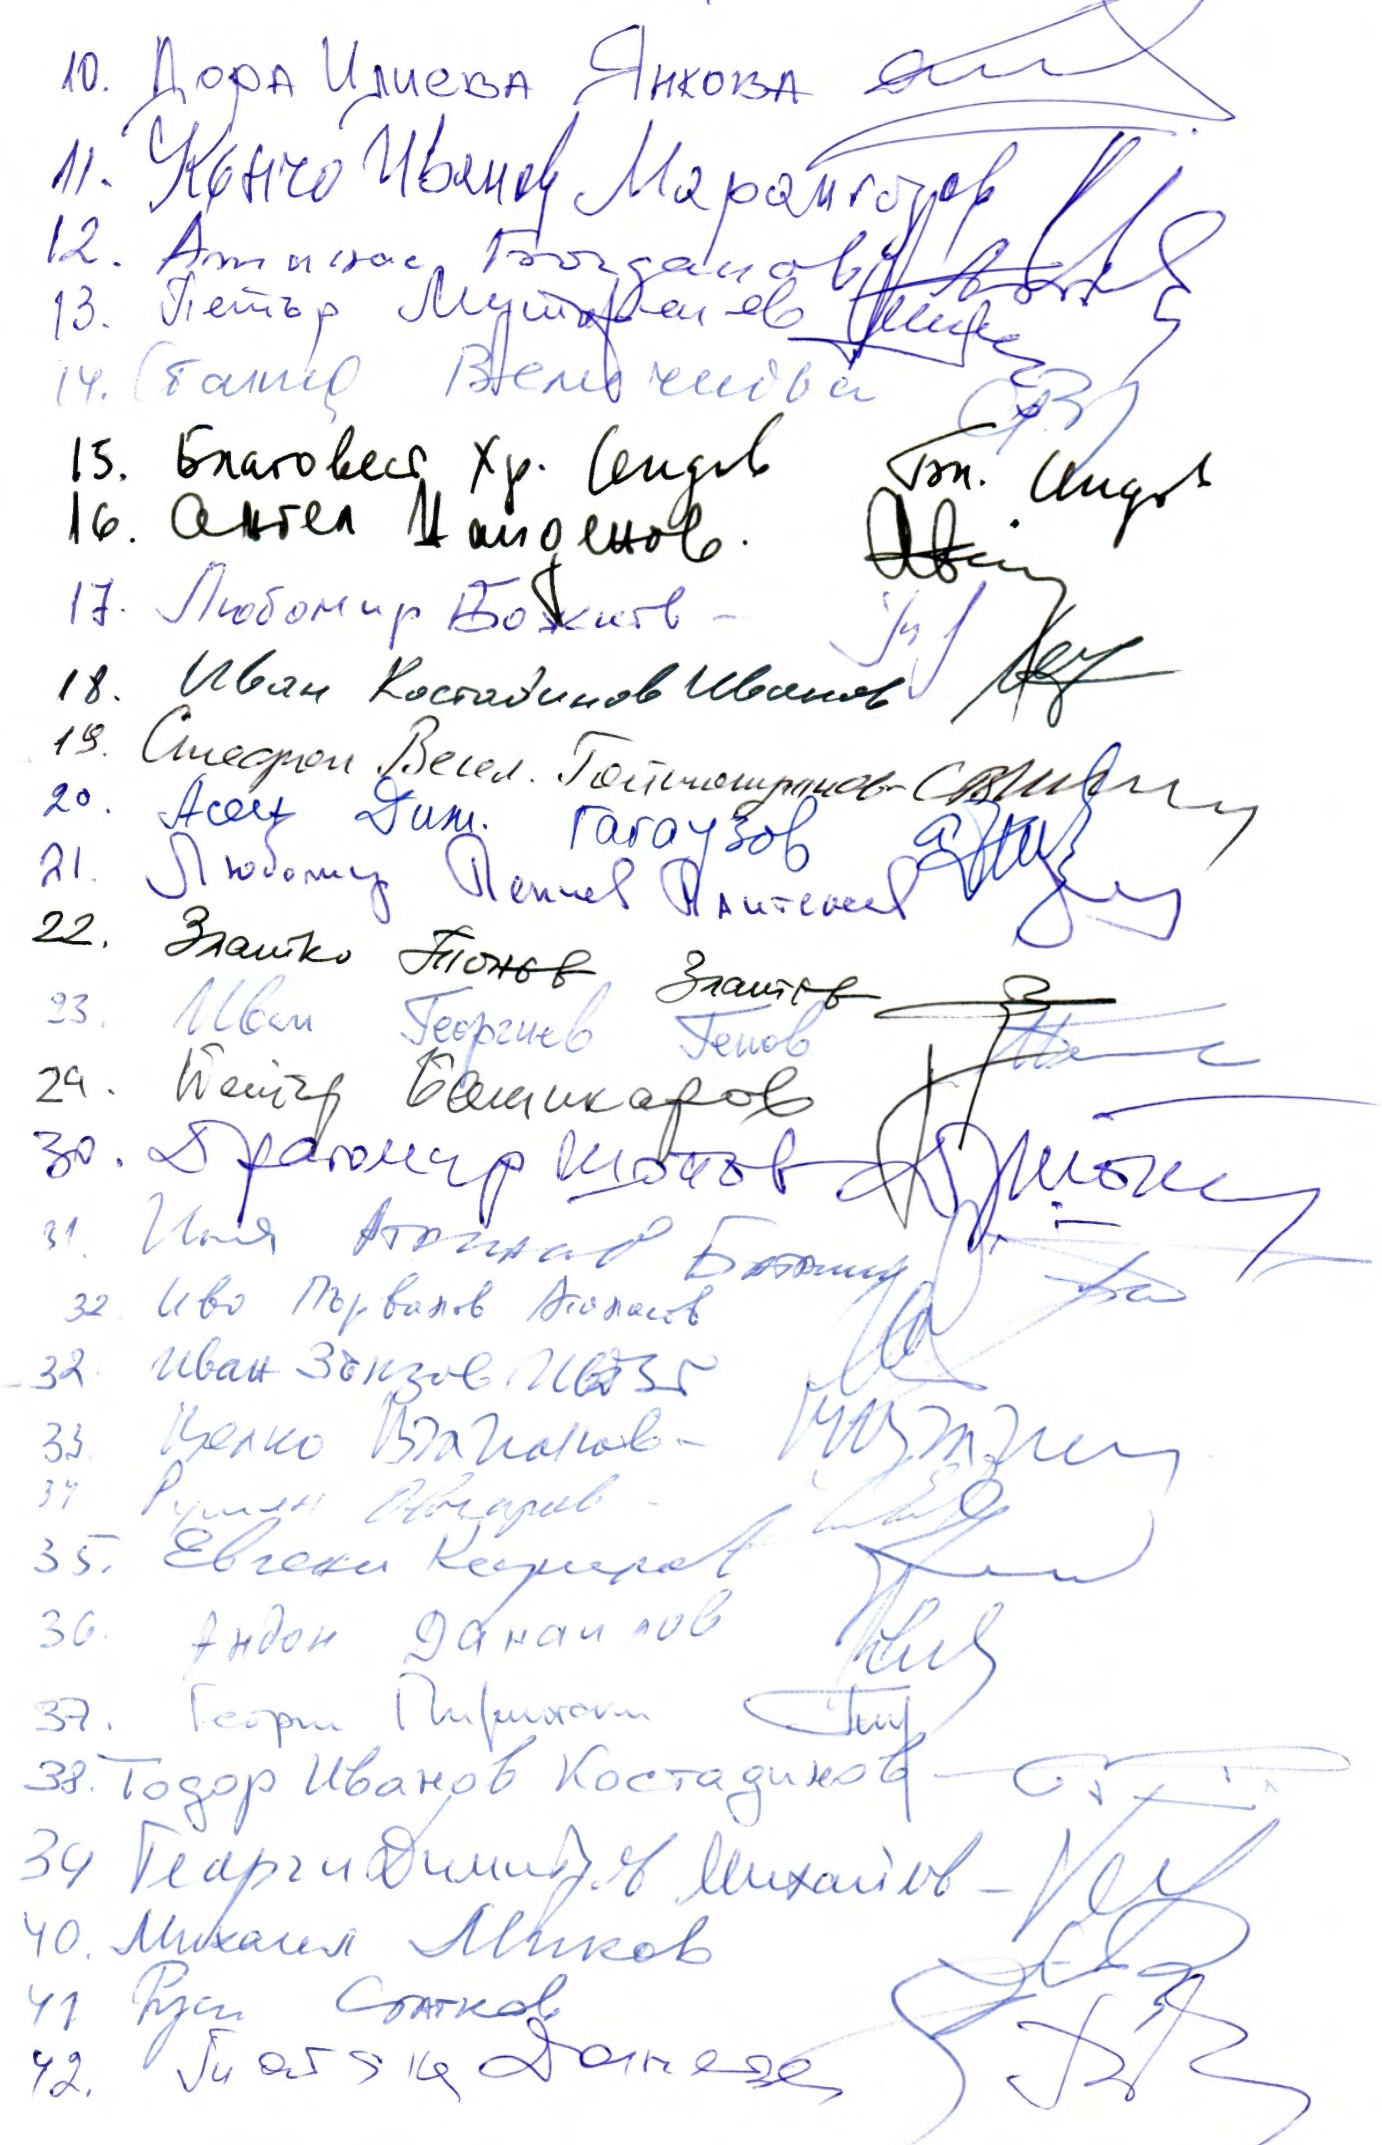 10. Дора Илиева Янкова
11. Кънчо Иванов Марангозов
12. Атанас Богданов
13. Петър Мутафчиев
14. Станка Величкова
15. Благовест Хр. Сендов Бл. Сендов
16. Ангел Найденов.
17. Любомир Божков -
18. Иван Костадинов Иванов
19. Стефан Васил.
20. Асен Дим. Гагаузов
21. Любомир Пенчев Пантелеев
22. Златко Тонев Златев
23. Иван Георгиев Генов
24. Петър Башикаров
30. Драгомир Шопов
31. Илия Атанасов Баташки
32 Иво Първанов Атанасов
32. Иван Зонзов
33. Велко Вълканов -
34 Румен Овчаров -
35. Евгени Кирилов
36. Андон Данаилов
37. Георги Пирински
38. Тодор Иванов Костадинов -
39 Георги Димитров Михайлов -
40. Михаил Миков
41 Руси Статков
42. Татяна Дончева